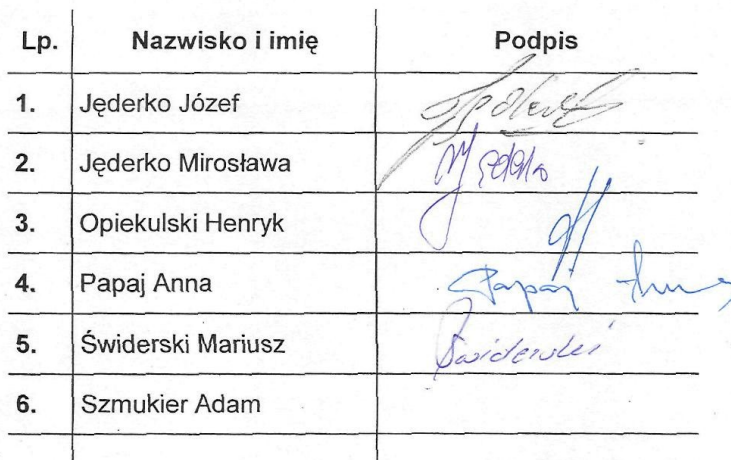 Lp. Nazwisko i imię Podpis
1. Jęderko Józef
2. Jęderko Mirosława
3. Opiekulski Henryk
4. Papaj Anna Papaj Anna
5. Świderski Mariusz Świderski
6. Szmukier Adam